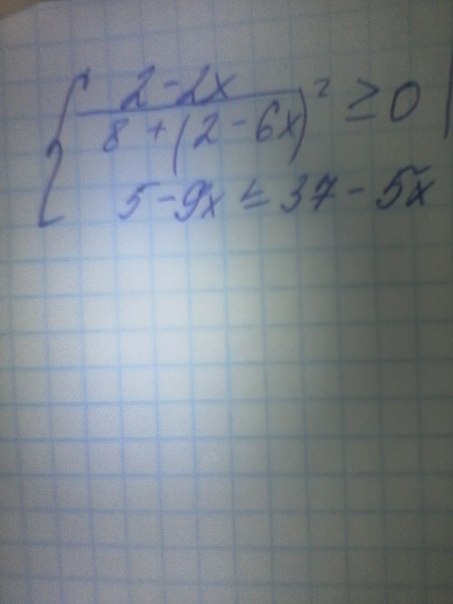 2-2x
8+(2-6x)² ≥0
5-9x≤37-5x